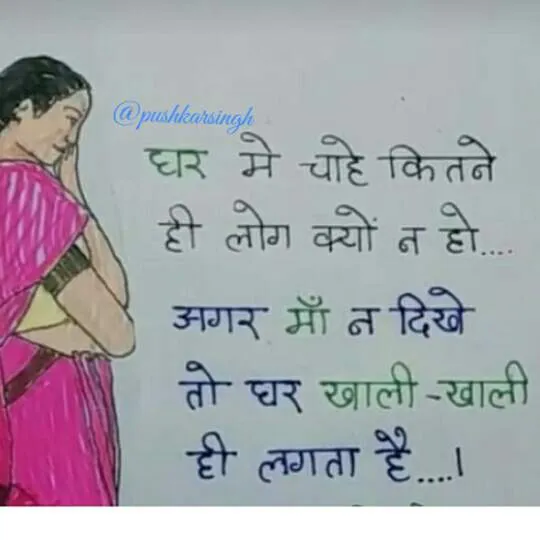 @pushkarsingh
घर मे चाहे कितने
ही लोग क्यों न हो....
अगर माँ न दिखे
तो घर खाली-खाली
ही लगता है....।